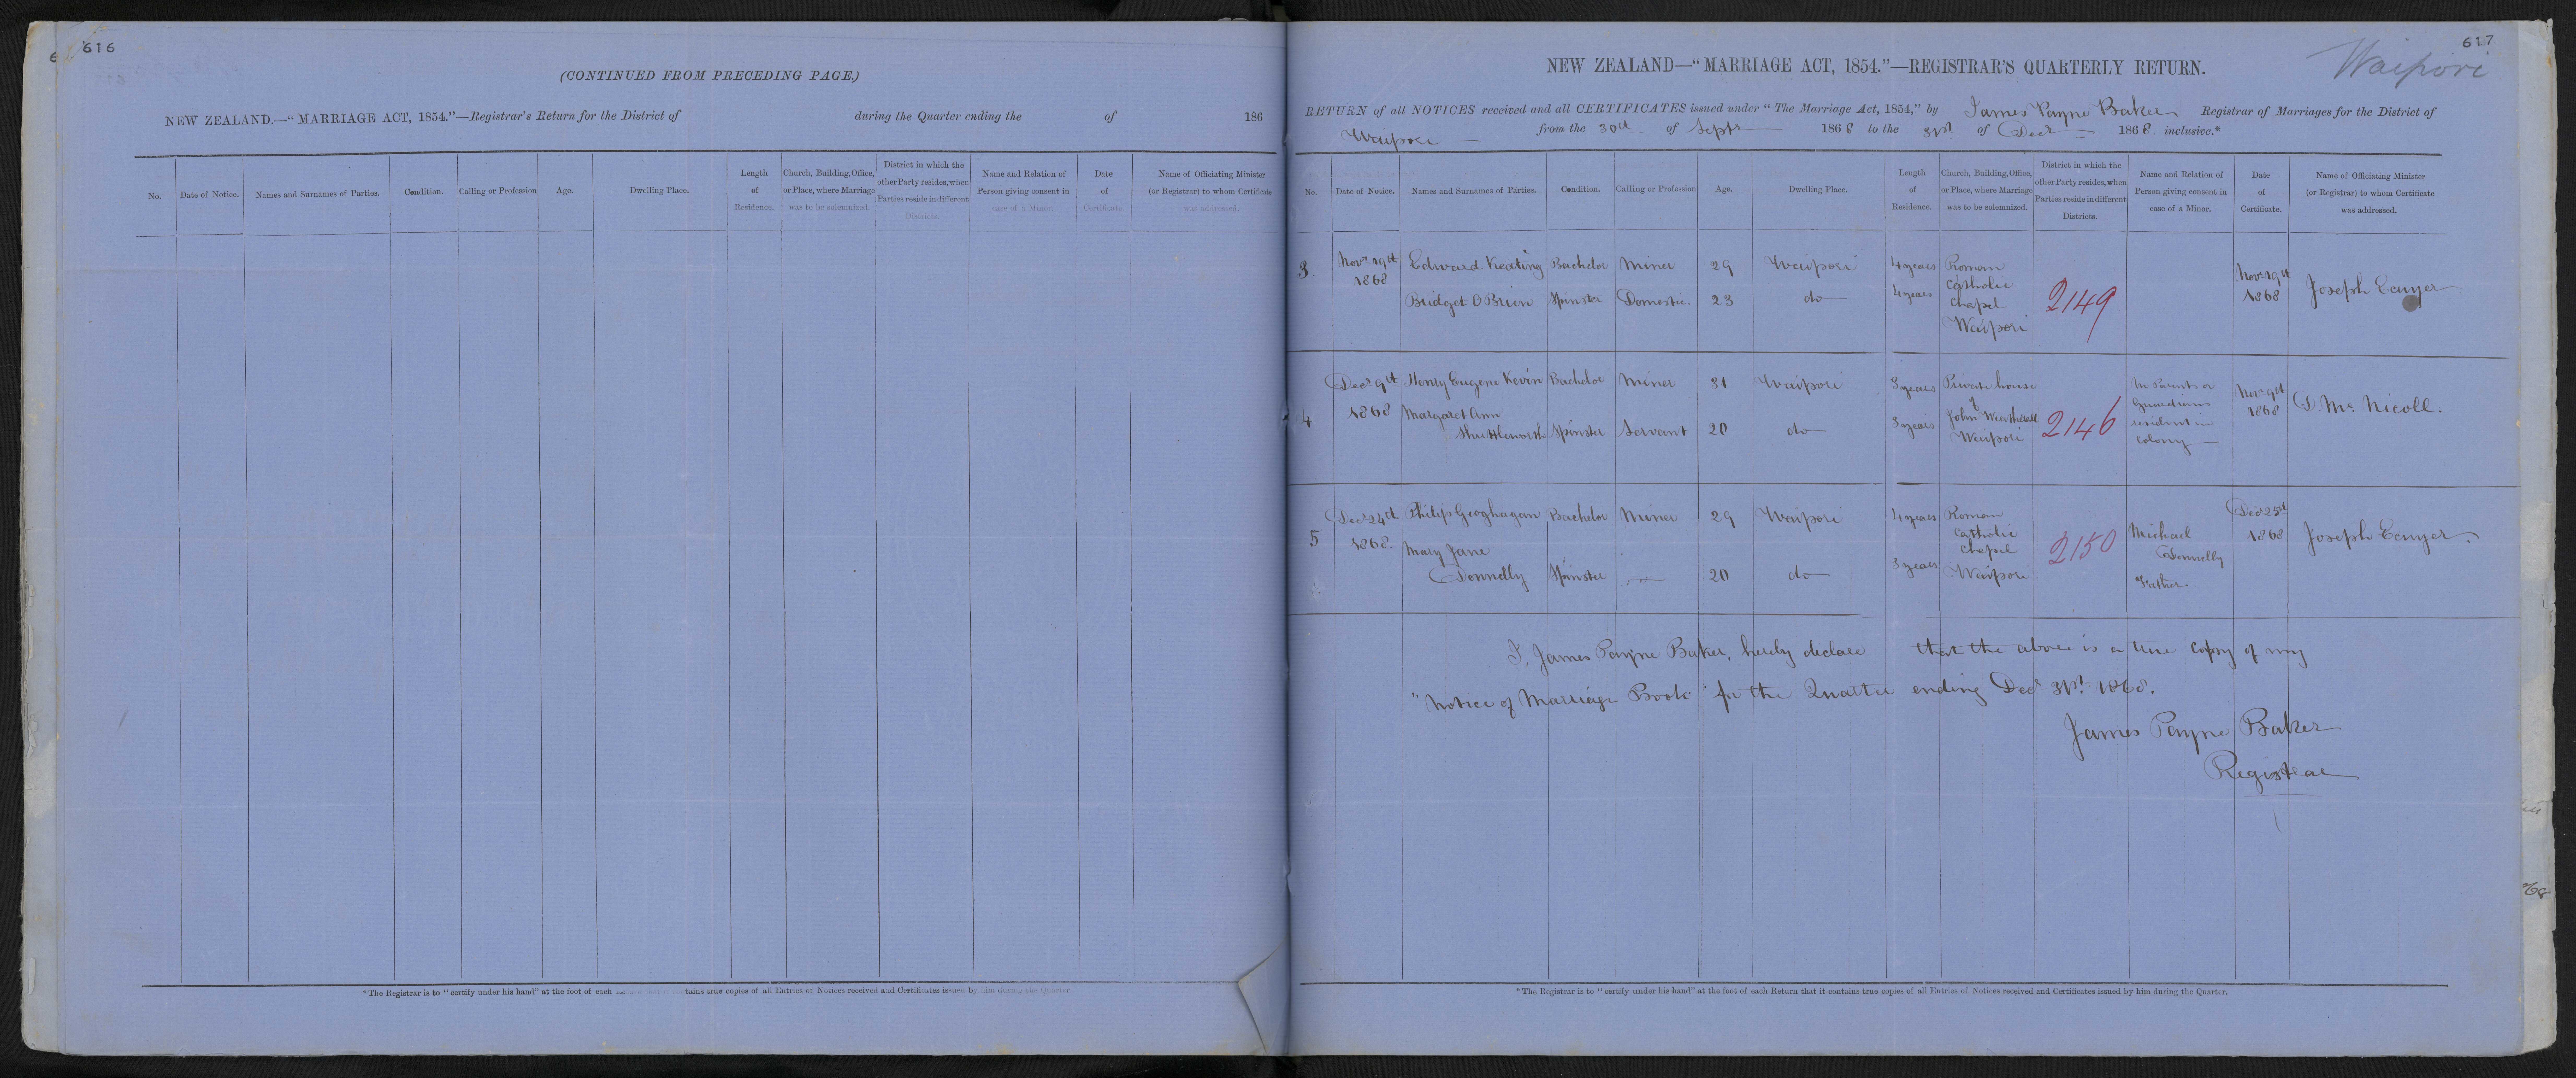 616
(CONTINUED FROM PRECEDING PAGE.)
NEW ZEALAND.—"MARRIAGE ACT, 1854."—Registrar's Return for the District of during the Quarter ending the of 186
No. Date of Notice. Names and Surnames of Parties. Condition. Calling or Profession Age. Dwelling Place. Length of Residence. Church, Building, Office, or Place, where Marriage was to be solemnized. District in which the other Party resides, when Parties reside in different Districts. Name and Relation of Person giving consent in case of a Minor. Date of Certificate. Name of Officiating Minister (or Registrar) to whom Certificate was addressed.
*The Registrar is to "certify under his hand" at the foot of each Return that it contains true copies of all Entries of Notices received and Certificates issued by him during the Quarter.
617
Waipori
NEW ZEALAND—"MARRIAGE ACT, 1854."—REGISTRAR'S QUARTERLY RETURN.
RETURN of all NOTICES received and all CERTIFICATES issued under "The Marriage Act, 1854," by James Payne Baker Registrar of Marriages for the District of
Waipori from the 30th of Septr 1868 to the 31st of Decr 1868. inclusive.*
No. Date of Notice. Names and Surnames of Parties. Condition. Calling or Profession Age. Dwelling Place. Length of Residence. Church, Building, Office, or Place, where Marriage was to be solemnized. District in which the other Party resides, when Parties reside in different Districts. Name and Relation of Person giving consent in case of a Minor. Date of Certificate. Name of Officiating Minister (or Registrar) to whom Certificate was addressed.
3. Novr 19th 1868 Edward Keating Bachelor Miner 29 Waipori 4 years Roman Catholic Chapel Waipori 2149 Novr 19th 1868 Joseph Ecuyer
Bridget O Brien Spinster Domestic. 23 do 4 years
4 Decr 9th 1868 Henry Eugene Kevin Bachelor Miner 31 Waipori 3 years Private house of John Weatherall Waipori 2146 No Parents or Guardians resident in Colony Novr 9th 1868 D Mc. Nicoll.
Margaret Ann Shuttleworth Spinster Servant 20 do 3 years
5 Decr 24th 1868. Philip Geoghagan Bachelor Miner 29 Waipori 4 years Roman Catholic Chapel Waipori 2150 Michael Donnelly Father Decr 25th 1868 Joseph Ecuyer.
Mary Jane Donnelly Spinster — 20 do 3 years
I, James Payne Baker, hereby declare that the above is a true copy of my
"Notice of Marriage Book" for the Quarter ending Decr 31st 1868.
James Payne Baker
Registrar
*The Registrar is to "certify under his hand" at the foot of each Return that it contains true copies of all Entries of Notices received and Certificates issued by him during the Quarter.